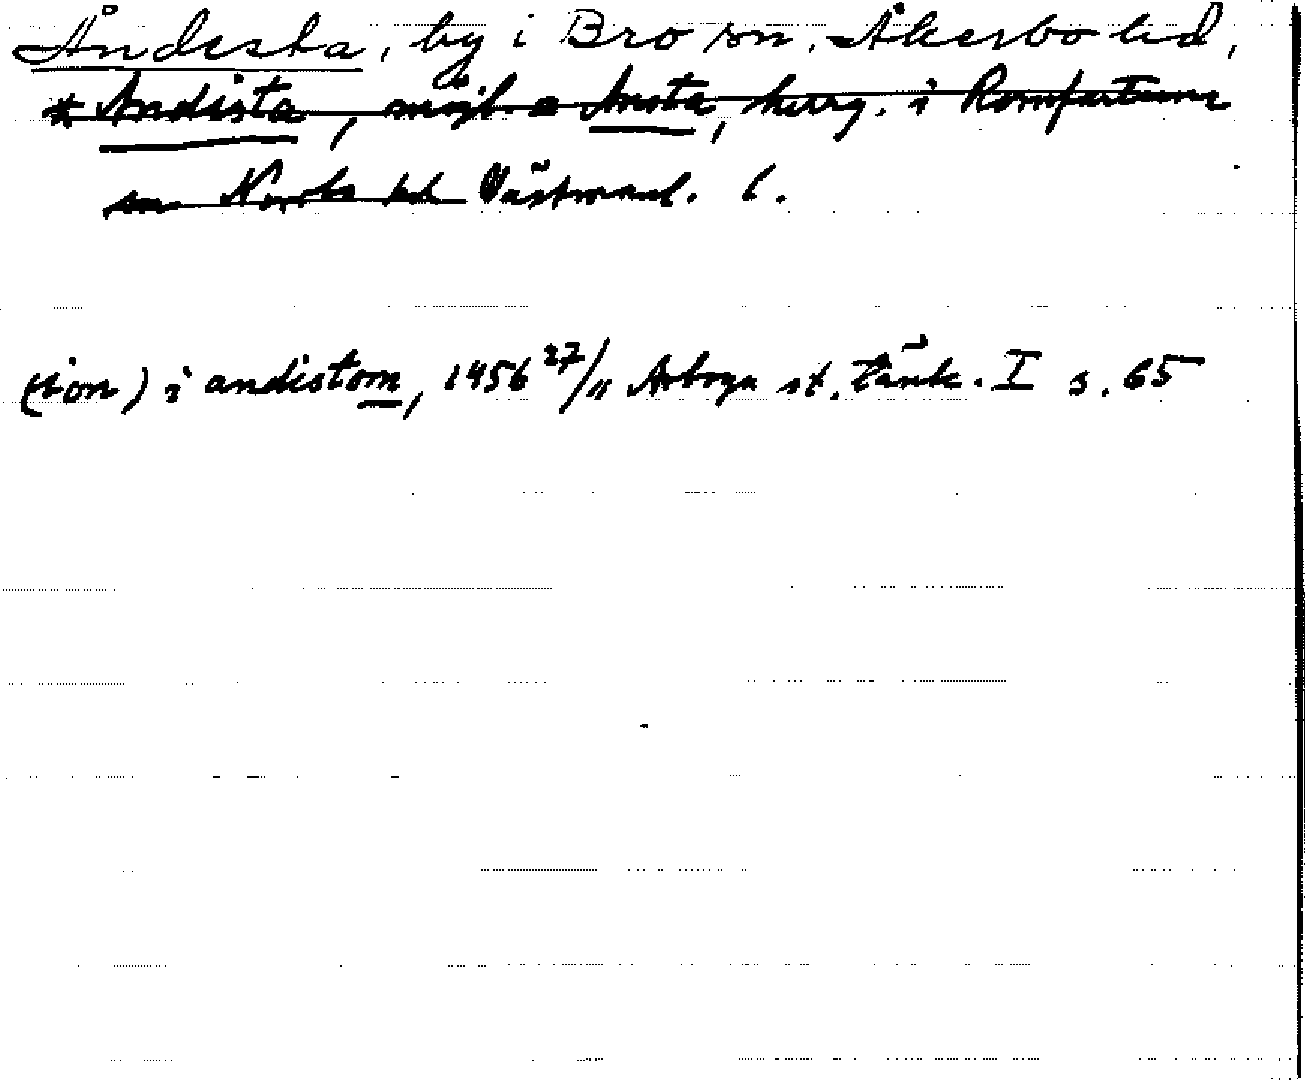 Åndesta, by i Bro sn, Åkerbo hd,
* Andista, möjl = Ansta, herrg. i Romfartuna
sn Norrbo hd Västmanl. l.
(Jon) i andistom, 1456 27/11 Arboga st. tänk. I s. 65